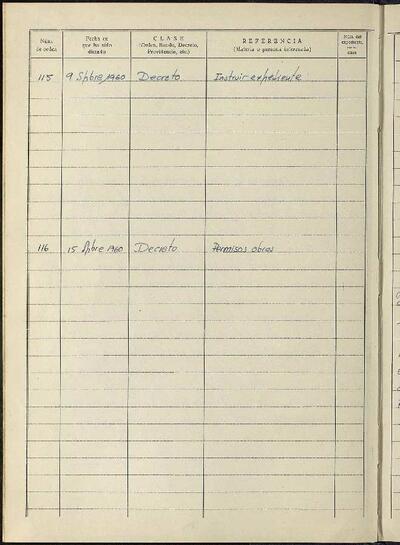 Núm. de orden
Fecha en que ha sido dictado
CLASE
(Orden, Bando, Decreto, Providencia, etc.)
REFERENCIA
(Materia o persona interesada)
115 9 Sbbre 1960 Decreto Instruir expediente
116 15 Sbbre 1960 Decreto Permisos obras